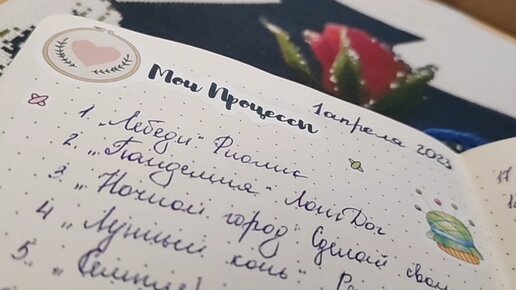 Мои Процессы
1 апреля 2023
1. „Лебеди" Риолис
2. „Пандемия" ЛонгДог
3. „Ночной город" Сделай Свои
4. „Лунный конь"
5.